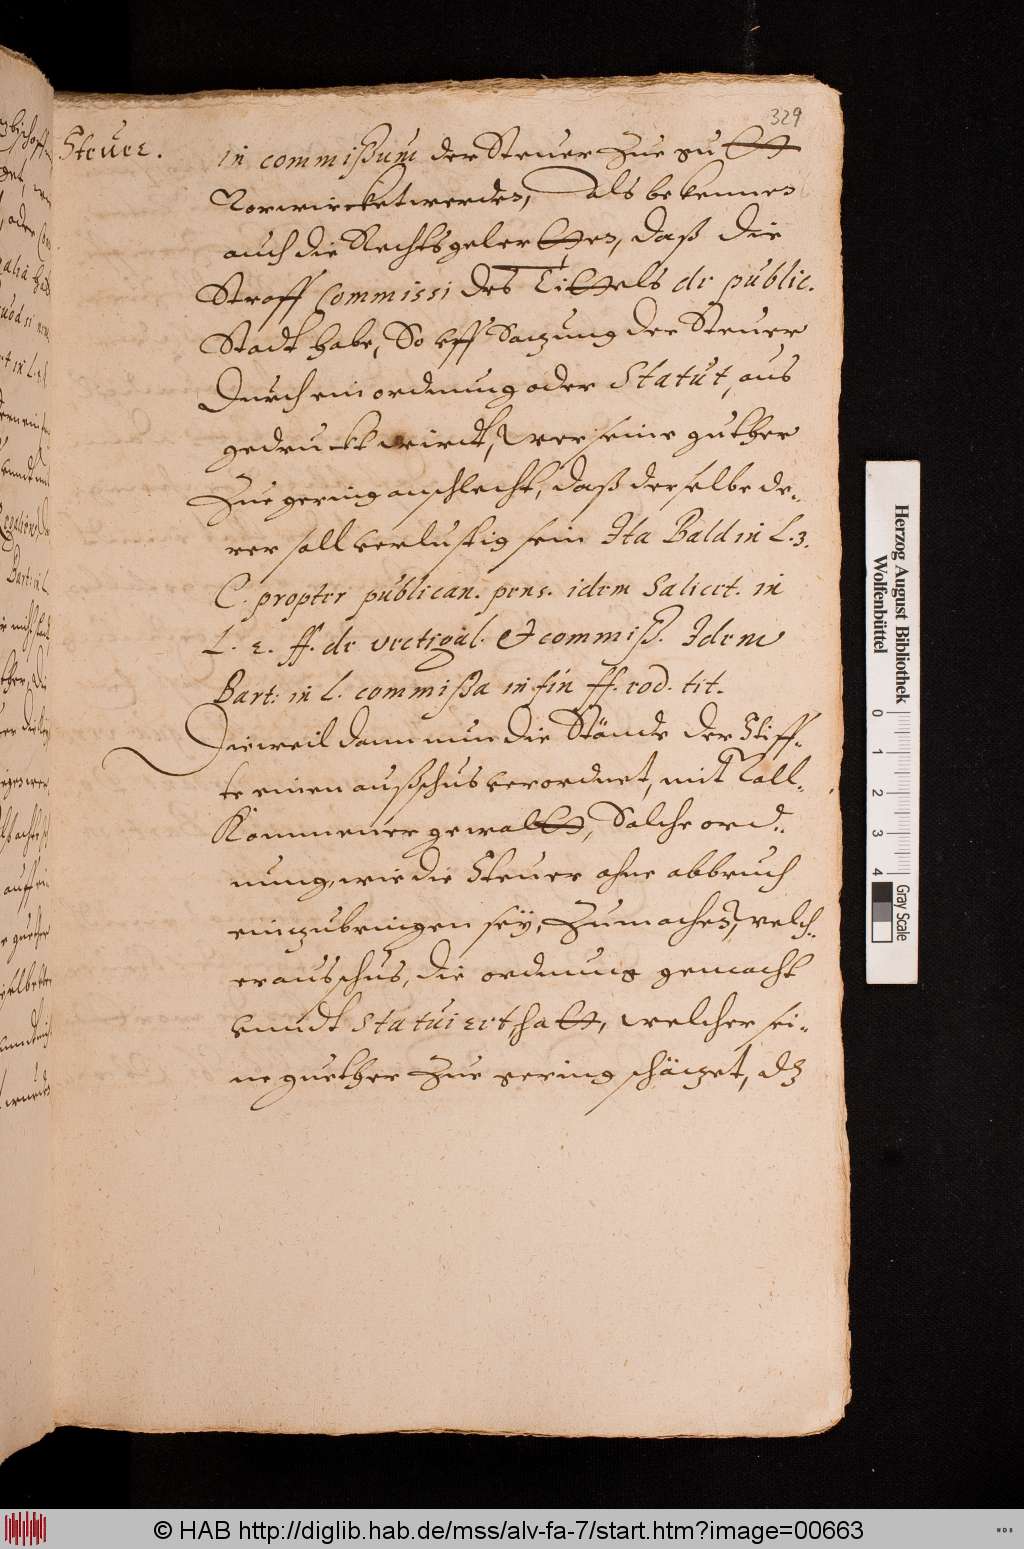 329
Steuer.
in commißum der Steuer Zue gutt
Vorwircket werden, als bekennen
auch die Rechtsgelertten, daß die
Straff Commissi des Tittels de public.
Stadt habe, So uff Satzung der Steuer
Durch ein ordnung oder Statut, aus
gedruckt wirdt, wer seine guther
Zue gering anschlecht, daß derselbe de-
rer soll verlustig sein Ita Bald in L. 3.
C. propter publican. pens. idem Salicet. in
L. 2. ff. de vectigal. et commiß. Idem
Bart: in L. commißa in fin ff. eod. tit.
Dieweil dann nun die Stände der Stiff-
te einen außschus verordnet, mit Voll-
Kommener gewaltt, Solche ord-
nung, wie die Steuer ohne abbruch
einzubringen sey, Zumachen, welch-
er ausschus, die ordnung gemacht
vnndt statuiert hatt, welcher sei-
ne guether Zue gering schätzet, dz
Herzog August Bibliothek
Wolfenbüttel
0 1 2 3 4
Gray Scale
© HAB http://diglib.hab.de/mss/alv-fa-7/start.htm?image=00663